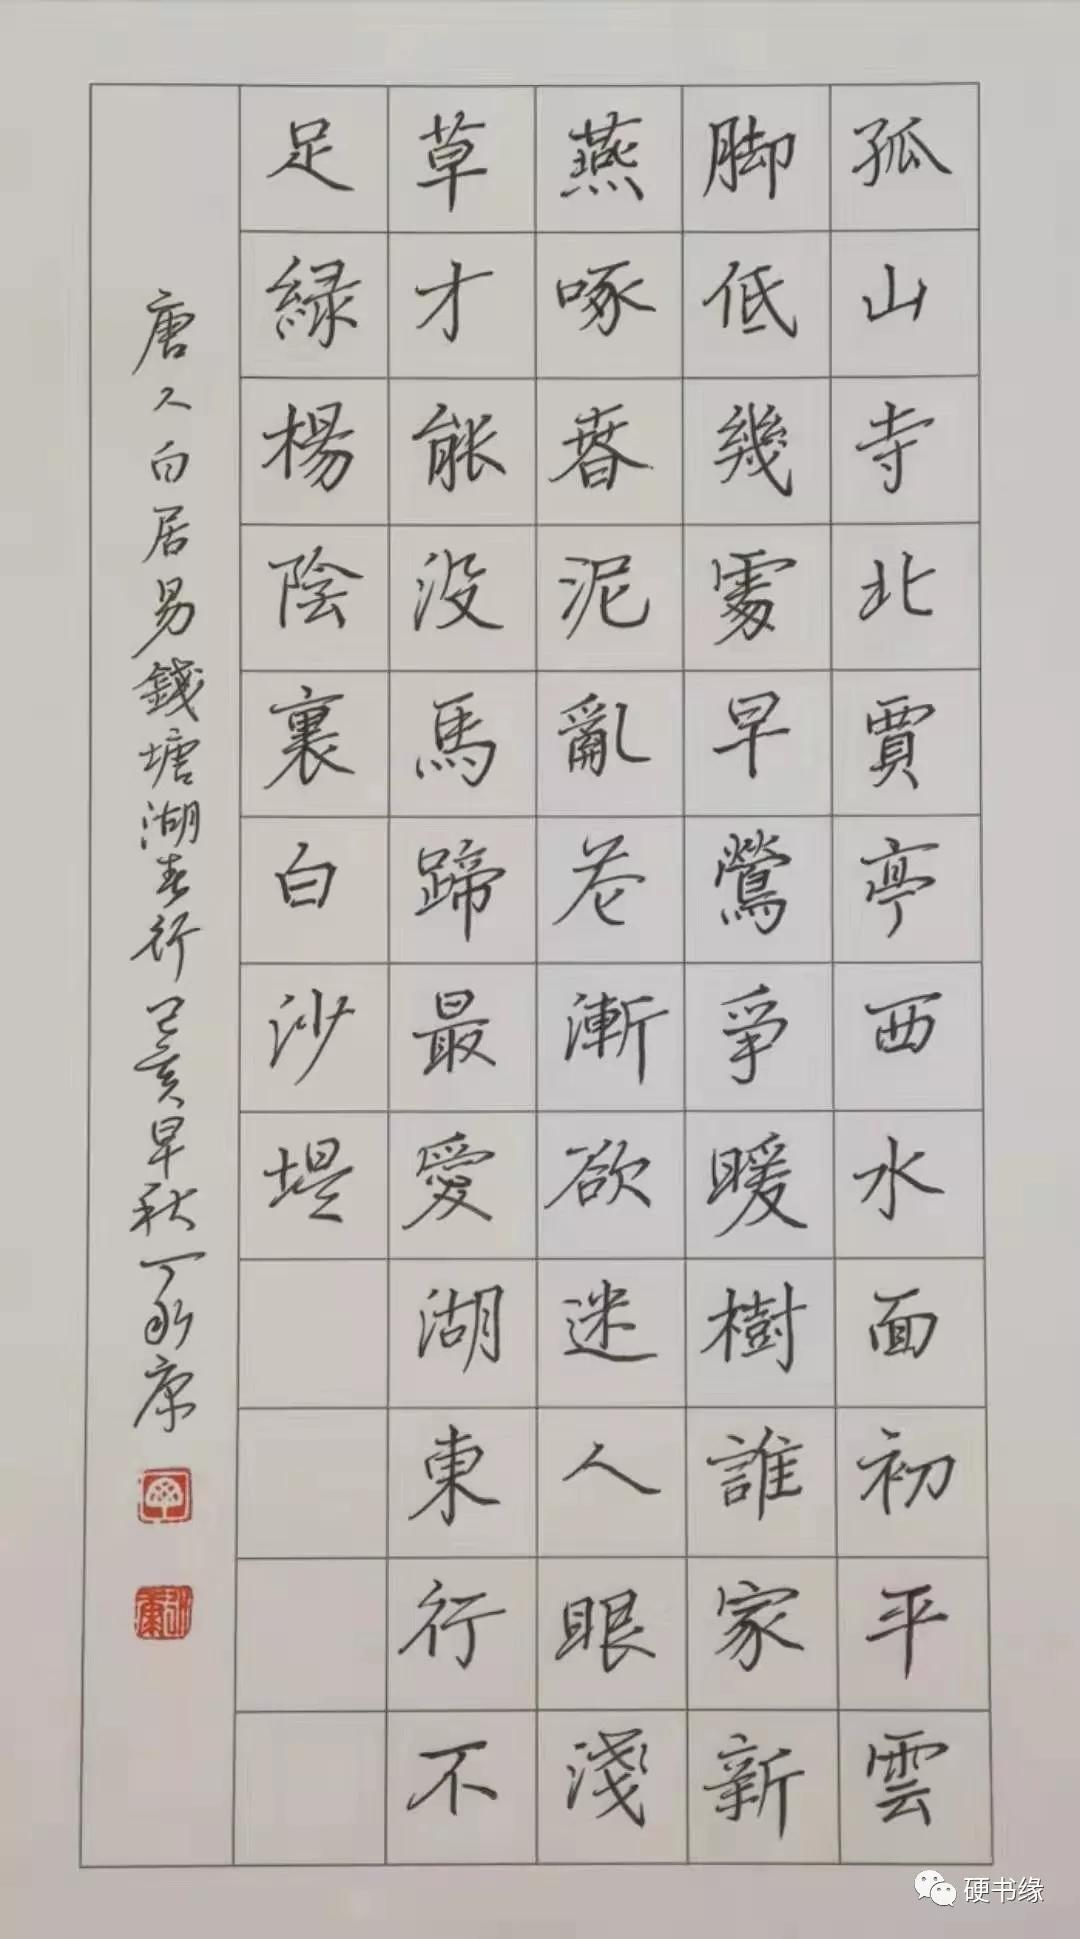 孤山寺北賈亭西水面初平雲
脚低幾處早鶯爭暖樹誰家新
燕啄春泥亂花漸欲迷人眼淺
草才能没馬蹄最愛湖東行不
足緑楊陰裏白沙堤
唐人白居易錢塘湖春行 己亥早秋丁永康
硬书缘